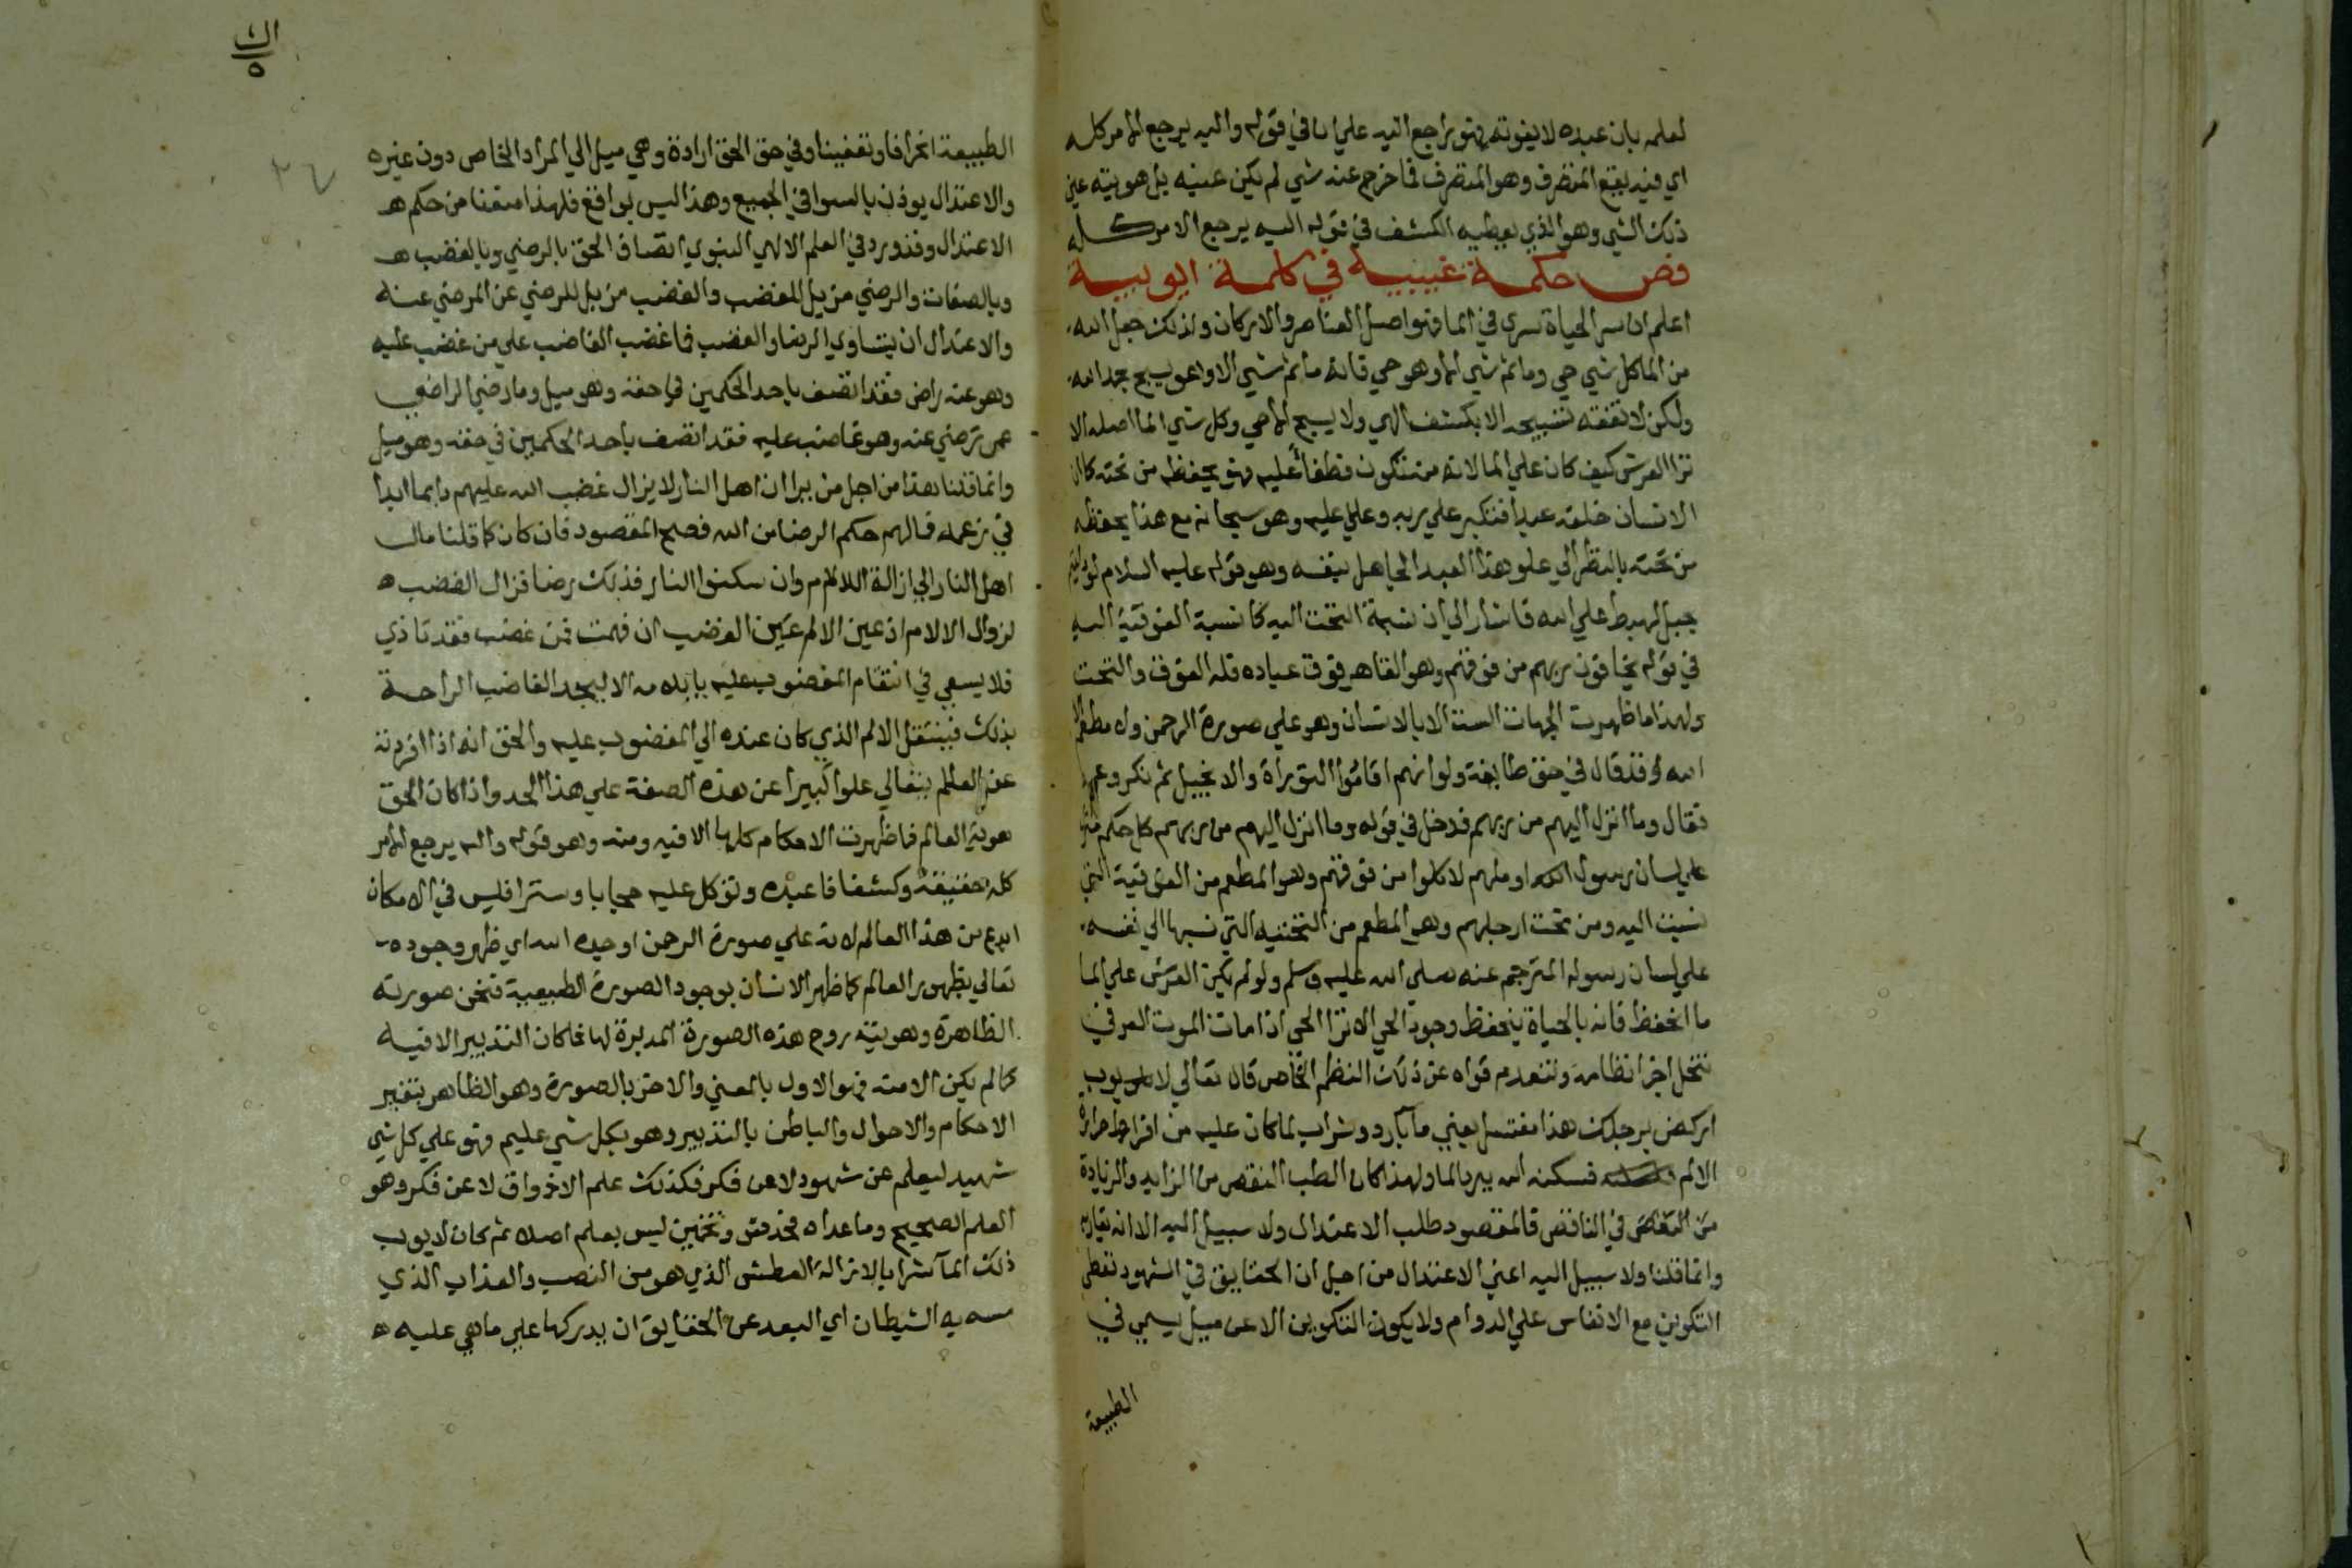 لعلمه بان عبده لا يفوته فهو راجع اليه علي انا في قوله واليه يرجع الامر كله
اي فيه يقع التصرف وهو المتصرف فما خرج عنه شي لم يكن عينه بل هويته عين
ذلك الشي وهو الذي يعطيه الكشف في قوله اليه يرجع الامر كله
فص حكمة غيبية في كلمة ايوبية
اعلم ان سر الحياة سري في الما فهو اصل العناصر والاركان ولذلك جعل الله
من الما كل شي حي وما ثم شي الا وهو حي فانه ما ثم شي الا وهو يسبح بحمد الله
ولكن لا تفقه تسبيحه الا بكشف الهي ولا يسبح الا حي وكل شي الما اصله الا
ترا العرش كيف كان علي الما لانه منه تكون فطفا عليه فهو يحفظه من تحته كما ان
الانسان خلقه عبدا فتكبر علي ربه وعلي عليه وهو سبحانه مع هذا يحفظه
من تحته بالنظر الي علو هذا العبد الجاهل بنفسه وهو قوله عليه السلام لو دليتم
بحبل لهبط علي الله فاشار الي ان نسبة التحت اليه كما نسبة الفوقية اليه
في قوله يخافون ربهم من فوقهم وهو القاهر فوق عباده فله الفوق والتحت
ولهذا ما ظهرت الجهات الست الا بالانسان وهو علي صورة الرحمن ولا مطعم الا
الله وقد قال في حق طايفة ولو انهم اقاموا التوراة والانجيل ثم نكر وعم
فقال وما انزل اليهم من ربهم فدخل في قوله وما انزل اليهم من ربهم كل حكم منزل
علي لسان رسول الله او ملهم لاكلوا من فوقهم وهو المطعم من الفوقية التي
نسبت اليه ومن تحت ارجلهم وهو المطعم من التحتيه التي نسبها الي نفسه
علي لسان رسوله المترجم عنه صلي الله عليه وسلم ولو لم يكن العرش علي الما
ما انحفظ فانه بالحياة ينحفظ وجود الحي الا ترا الحي اذا مات الموت العرفي
تنحل اجزا نظامه وتنعدم قواه عن ذلك النظم الخاص قال تعالي لايوب
اركض برجلك هذا مغتسل يعني ما بارد وشراب لما كان عليه من افراط حرارة
الالم فسكنه الله ببرد الما ولهذا كان الطب النقص من الزايد والزيادة
من النقص في الناقص فالمقصود طلب الاعتدال ولا سبيل اليه الا انه يقاربه
وانما قلنا ولا سبيل اليه اعني الاعتدال من اجل ان الحقايق في الشهود تعطي
التكوين مع الانفاس علي الدوام ولا يكون التكوين الا عن ميل يسمي في
الطبيعة
الطبيعة انحرافا وتعفينا وفي حق الحق ارادة وهي ميل الي المراد الخاص دون غيره
والاعتدال يوذن بالسوا في الجميع وهذا ليس بواقع فلهذا منعنا من حكم
الاعتدال وقد ورد في العلم الالهي النبوي اتصاف الحق بالرضي وبالغضب
وبالصفات والرضي مزيل للغضب والغضب مزيل للرضي عن المرضي عنه
والاعتدال ان يتساوي الرضا والغضب فما غضب الغاضب علي من غضب عليه
وهو عنه راض فقد اتصف باحد الحكمين في حقه وهو ميل وما رضي الراضي
عمن رضي عنه وهو غاضب عليه فقد اتصف باحد الحكمين في حقه وهو ميل
وانما قلنا هذا من اجل من يرا ان اهل النار لا يزال غضب الله عليهم دايما ابدا
في زعمه فما لهم حكم الرضا من الله فصح المقصود فان كان كما قلنا مال
اهل النار الي ازالة الالام وان سكنوا النار فذلك رضا فزال الغضب
لزوال الالام اذ عين الالم عين الغضب ان فهمت فمن غضب فقد تاذي
فلا يسعي في انتقام المغضوب عليه بايلامه الا ليجد الغاضب الراحة
بذلك فينتقل الالم الذي كان عنده الي المغضوب عليه والحق انه اذا افردته
عن العالم يتعالي علوا كبيرا عن هذه الصفة علي هذا الحد واذا كان الحق
هوية العالم فما ظهرت الاحكام كلها الا فيه ومنه وهو قوله واليه يرجع الامر
كله حقيقة وكشفا فاعبده وتوكل عليه حجابا وسترا فليس في الامكان
ابدع من هذا العالم لانه علي صورة الرحمن اوجده الله اي ظهر وجوده
تعالي بظهور العالم كما ظهر الانسان بوجود الصورة الطبيعية فنحن صورته
الظاهرة وهويته روح هذه الصورة المدبرة لها فما كان التدبير الا فيه
كما لم يكن الا منه فهو الاول بالمعني والاخر بالصورة وهو الظاهر بتغير
الاحكام والاحوال والباطن بالتدبير وهو بكل شي عليم فهو علي كل شي
شهيد ليعلم عن شهود لا عن فكر فكذلك علم الاذواق لا عن فكر وهو
العلم الصحيح وما عداه فحدس وتخمين ليس بعلم اصلا ثم كان لايوب
ذلك الما شرابا لازالة العطش الذي هو من النصب والعذاب الذي
مسه به الشيطان اي البعد عن الحقايق ان يدركها علي ما هي عليه